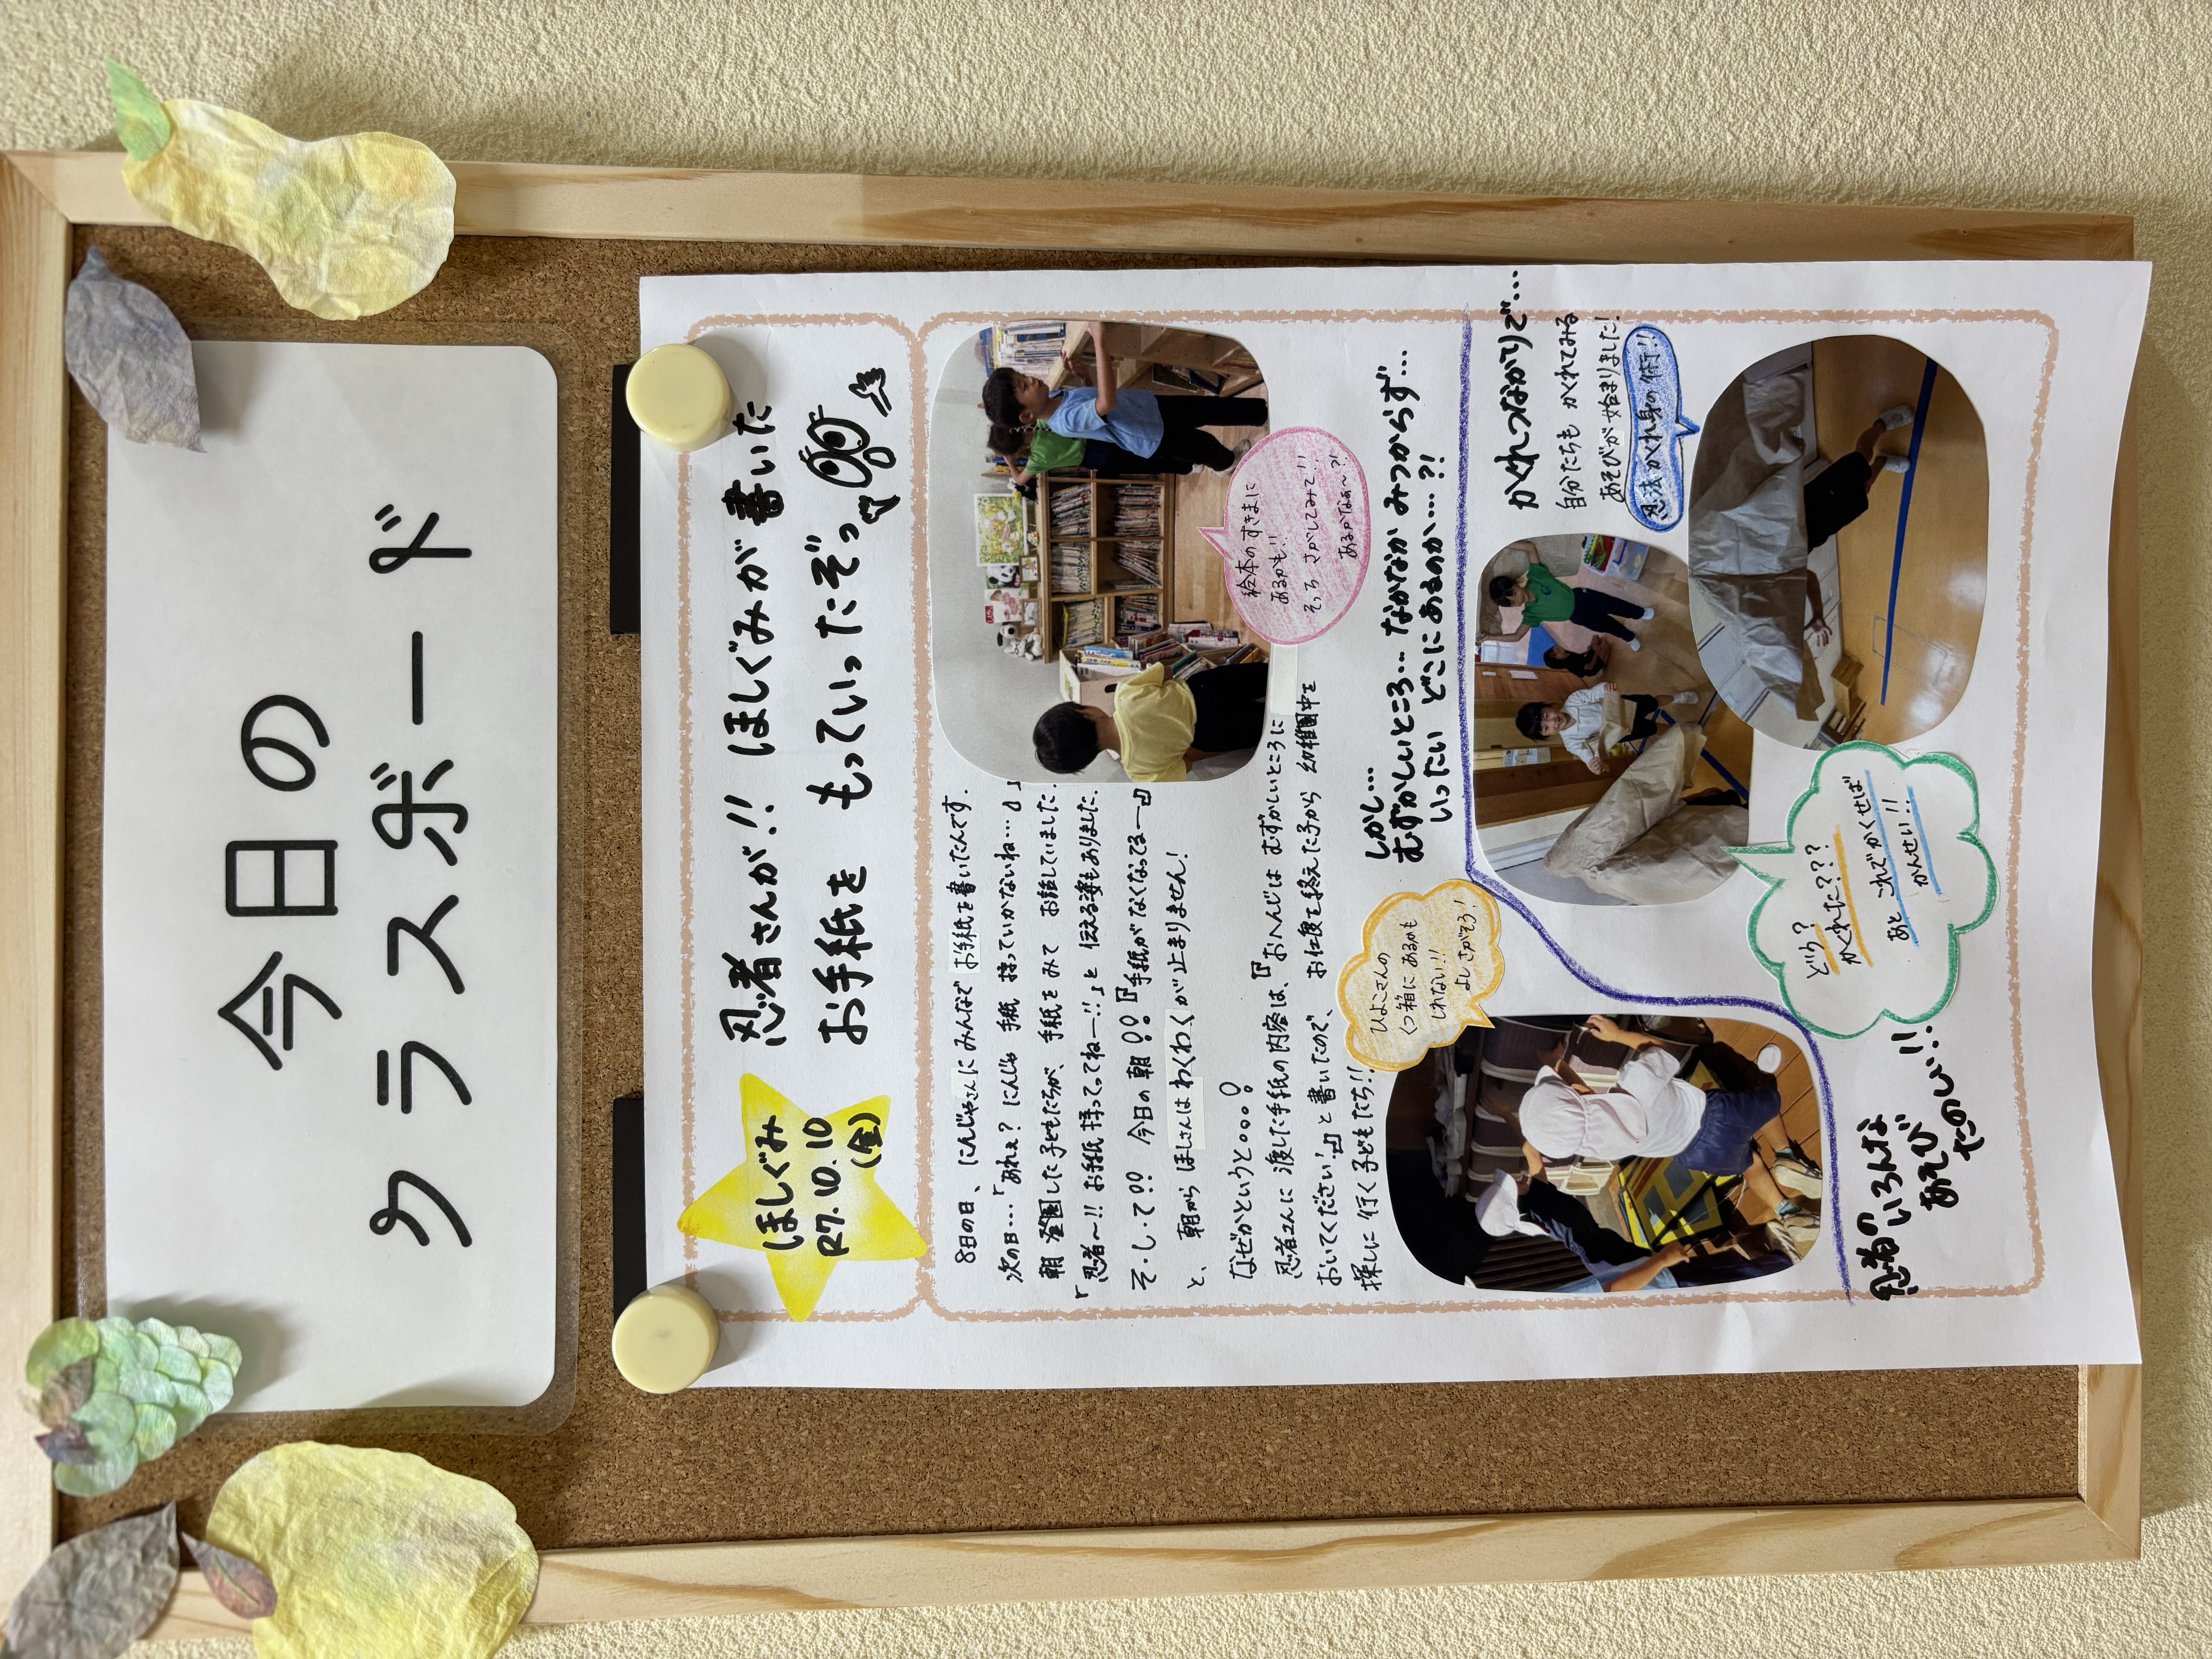 今日の
クラスボード
ほしぐみ
R7.10.10
(金)
忍者さんが!! ほしぐみが書いた
お手紙を もっていったぞっ
8日の日、にんじゃさんにみんなで お手紙を書いたんです.
次の日…「あれぇ? にんじゃ 手紙 持っていかないね…」
朝 登園した子どもたちが、手紙をみて お話していました.
「忍者〜!! お手紙 持ってってねー!!」と 伝える姿もありました.
そ・し・て!! 今日の朝!!『手紙がなくなってるー』
と、朝から ほしさんは わくわく が止まりません!
なぜかというと。。。
忍者さんに 渡した手紙の内容は、『おへんじは むずかしいところに
おいてください!』と書いたので、お仕度を終えた子から 幼稚園中を
探しに行く子どもたち!!
絵本のすきまに
あるかも!!
そっち さがしてみて!!
あるかなぁ〜?!
しかし…
むずかしいところ… なかなか みつからず…
いったい どこにあるのか…?!
ひよこさんの
くつ箱にあるかも
しれない!!
よし さがそう!
かくれつながりで…
自分たちも かくれてみる
あそびが 始まりました!
忍法 かくれ身の術!!
どう?
かくれた???
あと これで かくせば
かんせい!!
忍者の
いろんな
あそび
たのしい!!